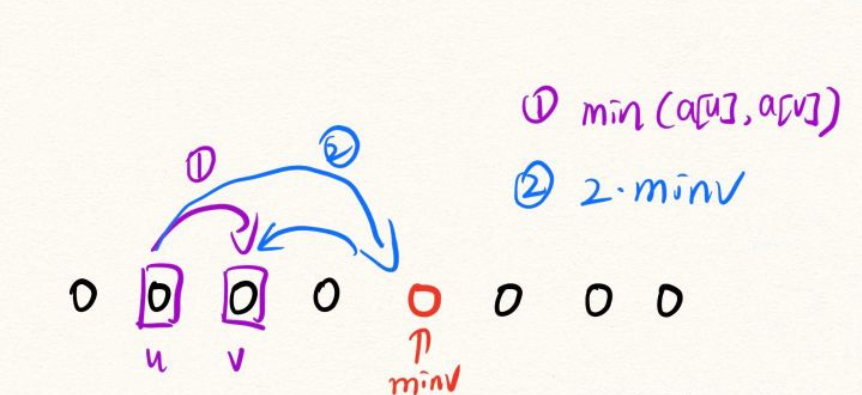 ① min (a[u], a[v])
② 2·minv
① ②
0 0 0 0 0 0 0 0
u v
minv